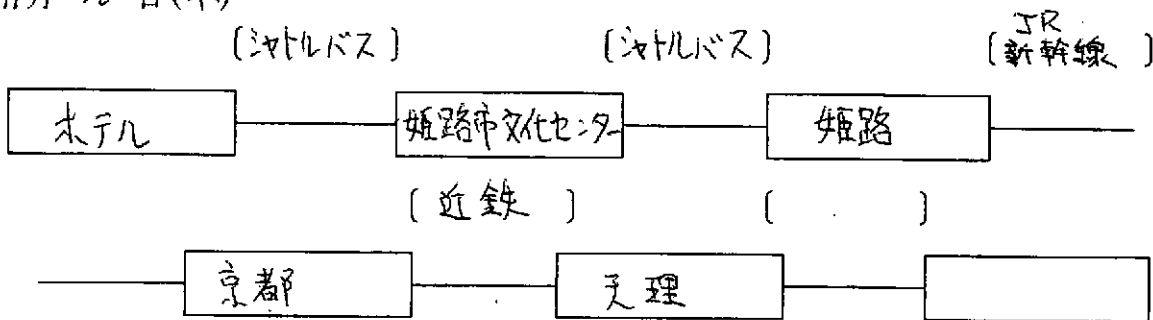 (シャトルバス) (シャトルバス) (JR 新幹線)
ホテル 姫路市文化センター 姫路
(近鉄) ( . )
京都 天理